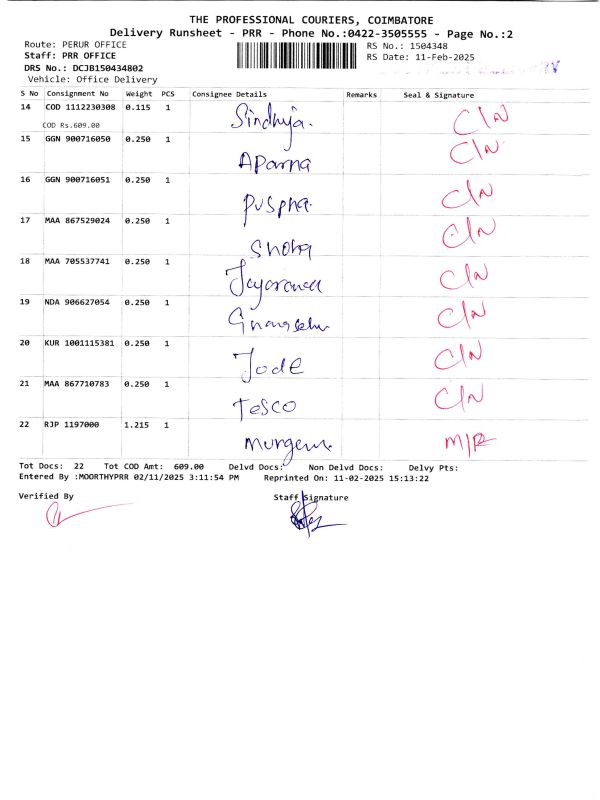 THE PROFESSIONAL COURIERS, COIMBATORE
Delivery Runsheet - PRR - Phone No.:0422-3505555 - Page No.:2
Route: PERUR OFFICE
RS No.: 1504348
Staff: PRR OFFICE
RS Date: 11-Feb-2025
DRS No.: DCJB150434802
Vehicle: Office Delivery
S No Consignment No Weight PCS Consignee Details Remarks Seal & Signature
14 COD 1112230308 0.115 1 Sindhuja. C/N
COD Rs.609.00
15 GGN 900716050 0.250 1 Aparna C/N
16 GGN 900716051 0.250 1 Puspha. C/N
17 MAA 867529024 0.250 1 Shoba C/N
18 MAA 705537741 0.250 1 C/N
19 NDA 906627054 0.250 1 C/N
20 KUR 1001115381 0.250 1 Jode C/N
21 MAA 867710783 0.250 1 Tesco C/N
22 RJP 1197000 1.215 1 M/R
Tot Docs: 22 Tot COD Amt: 609.00 Delvd Docs: Non Delvd Docs: Delvy Pts:
Entered By :MOORTHYPRR 02/11/2025 3:11:54 PM Reprinted On: 11-02-2025 15:13:22
Verified By Staff Signature